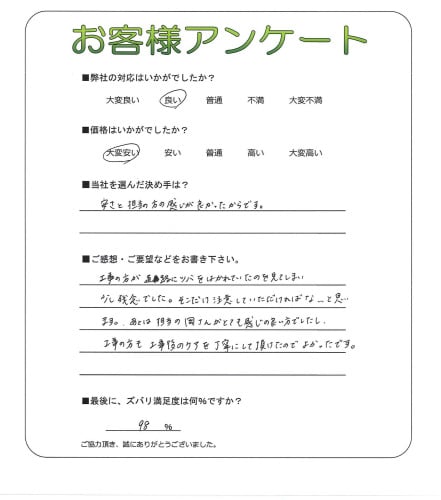 お客様アンケート
■弊社の対応はいかがでしたか？
大変良い 良い 普通 不満 大変不満
■価格はいかがでしたか？
大変安い 安い 普通 高い 大変高い
■当社を選んだ決め手は？
安さと担当の方の感じが良かったからです。
■ご感想・ご要望などをお書き下さい。
工事の方が道路にツバをはかれていたのを見てしまい
少し残念でした。そこだけ注意していただければな…と思い
ます。あとは担当の岡さんがとても感じの良い方でしたし、
工事の方も工事後のケアを丁寧にして頂けたのでよかったです。
■最後に、ズバリ満足度は何％ですか？
98 ％
ご協力頂き、誠にありがとうございました。